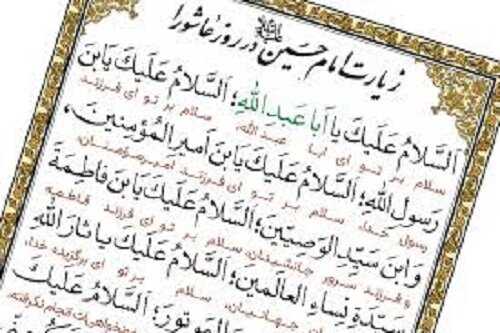 زیارت امام حسین علیه السلام در روز عاشورا
اَلسَّلامُ عَلَیْکَ یا اَبا عَبدِ اللهِ؛ اَلسَّلامُ عَلَیْکَ یَابنَ
سلام بر تو ای ابا عبدالله، سلام بر تو ای فرزند
رَسولِ اللهِ؛ اَلسَّلامُ عَلَیْکَ یَابنَ اَمیرِ المُؤمِنینَ،
رسول خدا، سلام بر تو ای فرزند امیرمؤمنان،
وَ ابنَ سَیِّدِ الوَصِیّینَ؛ اَلسَّلامُ عَلَیْکَ یَابنَ فاطِمَةَ
و فرزند سرور جانشینان، سلام بر تو ای فرزند فاطمه
سَیِّدَةِ نِساءِ العالَمینَ؛ اَلسَّلامُ عَلَیْکَ یا ثارَ اللهِ
جهانیان، سلام بر تو ای برگزیده خدا،
المَوتورَ؛ اَلسَّلامُ عَلَیْکَ